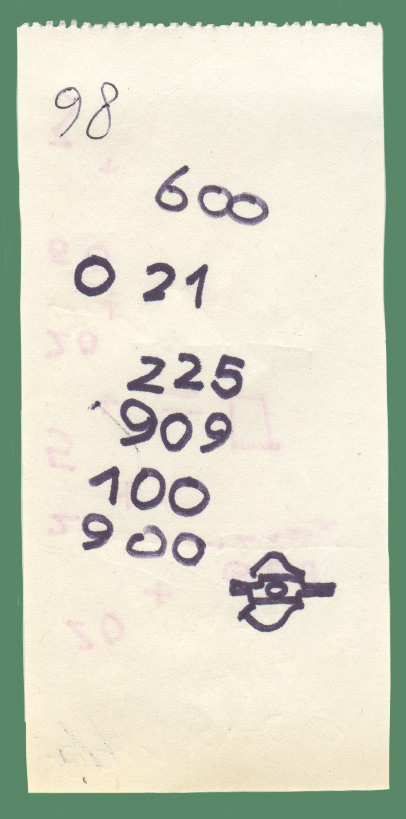 98
600
0 21
225
909
100
900